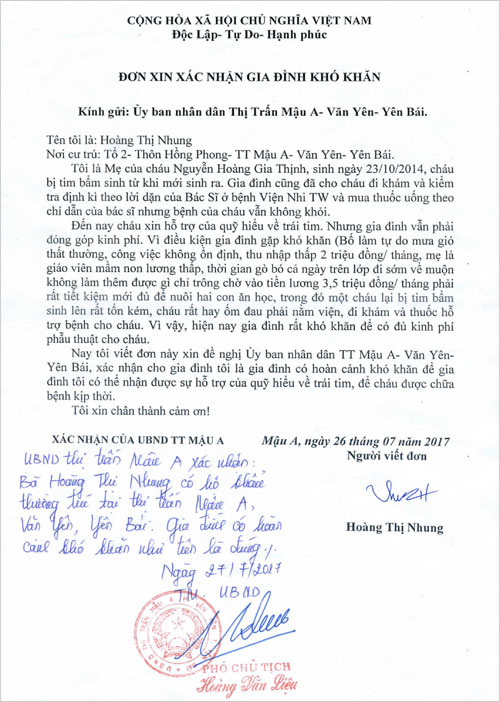 CỘNG HÒA XÃ HỘI CHỦ NGHĨA VIỆT NAM
Độc Lập- Tự Do- Hạnh phúc
ĐƠN XIN XÁC NHẬN GIA ĐÌNH KHÓ KHĂN
Kính gửi: Ủy ban nhân dân Thị Trấn Mậu A- Văn Yên- Yên Bái.
Tên tôi là: Hoàng Thị Nhung
Nơi cư trú: Tổ 2- Thôn Hồng Phong- TT Mậu A- Văn Yên- Yên Bái.
Tôi là Mẹ của cháu Nguyễn Hoàng Gia Thịnh, sinh ngày 23/10/2014, cháu
bị tim bẩm sinh từ khi mới sinh ra. Gia đình cũng đã cho cháu đi khám và kiểm
tra định kì theo lời dặn của Bác Sĩ ở bệnh Viện Nhi TW và mua thuốc uống theo
chỉ dẫn của bác sĩ nhưng bệnh của cháu vẫn không khỏi.
Đến nay cháu xin hỗ trợ của quỹ hiểu về trái tim. Nhưng gia đình vẫn phải
đóng góp kinh phí. Vì điều kiện gia đình gặp khó khăn (Bố làm tự do mưa gió
thất thường, công việc không ổn định, thu nhập thấp 2 triệu đồng/ tháng, mẹ là
giáo viên mầm non lương thấp, thời gian gò bó cả ngày trên lớp đi sớm về muộn
không làm thêm được gì chỉ trông chờ vào tiền lương 3,5 triệu đồng/ tháng phải
rất tiết kiệm mới đủ để nuôi hai con ăn học, trong đó một cháu lại bị tim bẩm
sinh lên rất tốn kém, cháu rất hay ốm đau phải nằm viện, đi khám và thuốc hỗ
trợ bệnh cho cháu. Vì vậy, hiện nay gia đình rất khó khăn để có đủ kinh phí
phẫu thuật cho cháu.
Nay tôi viết đơn này xin đề nghị Ủy ban nhân dân TT Mậu A- Văn Yên-
Yên Bái, xác nhận cho gia đình tôi là gia đình có hoàn cảnh khó khăn để gia
đình tôi có thể nhận được sự hỗ trợ của quỹ hiểu về trái tim, để cháu được chữa
bệnh kịp thời.
Tôi xin chân thành cảm ơn!
XÁC NHẬN CỦA UBND TT MẬU A
Mậu A, ngày 26 tháng 07 năm 2017
Người viết đơn
Hoàng Thị Nhung
UBND thị trấn Mậu A xác nhận:
Bà Hoàng Thị Nhung có hộ khẩu
thường trú tại thị trấn Mậu A,
Văn Yên, Yên Bái. Gia đình có hoàn
cảnh khó khăn như trên là đúng./.
Ngày 27/7/2017
T.M UBND
PHÓ CHỦ TỊCH
Hoàng Văn Liệu